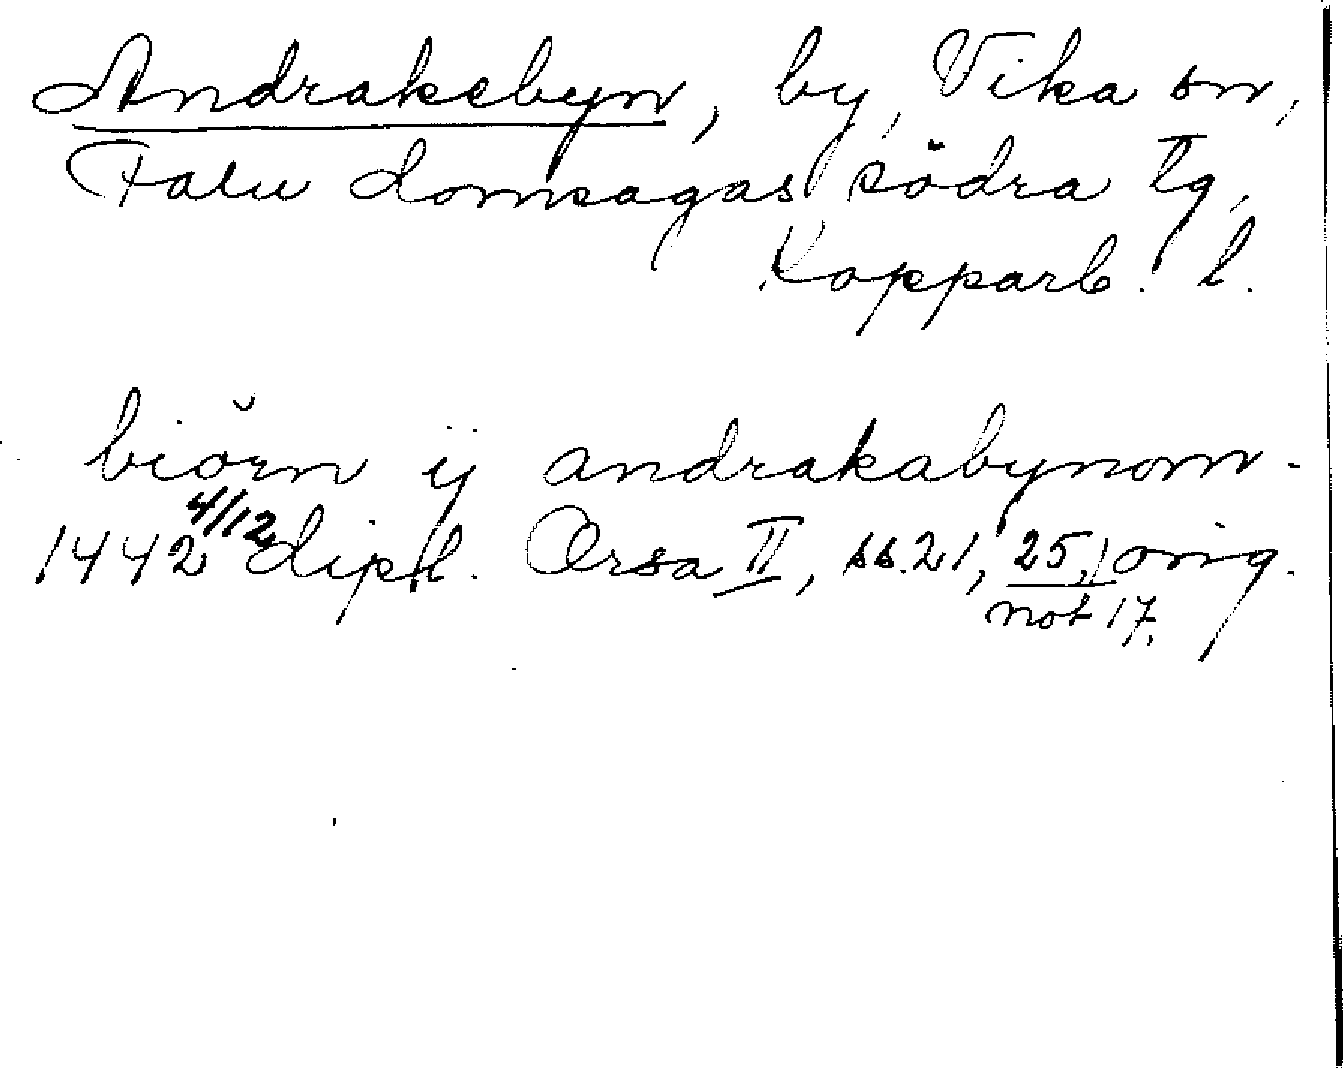 Andraksbyn, by, Vika sn,
Falu domsagas södra tg,
Kopparb. l.
biörn ij andrakabynom.
1442 4/12 dipl. Orsa II, ss. 21, 25, orig.
not 17.